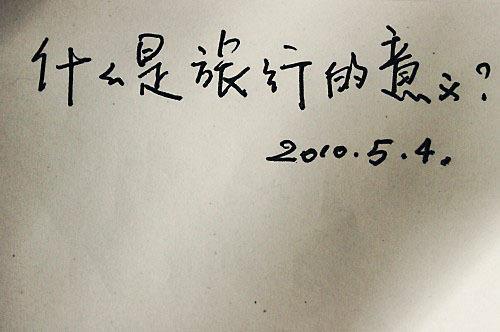 什么是旅行的意义?
2010.5.4.